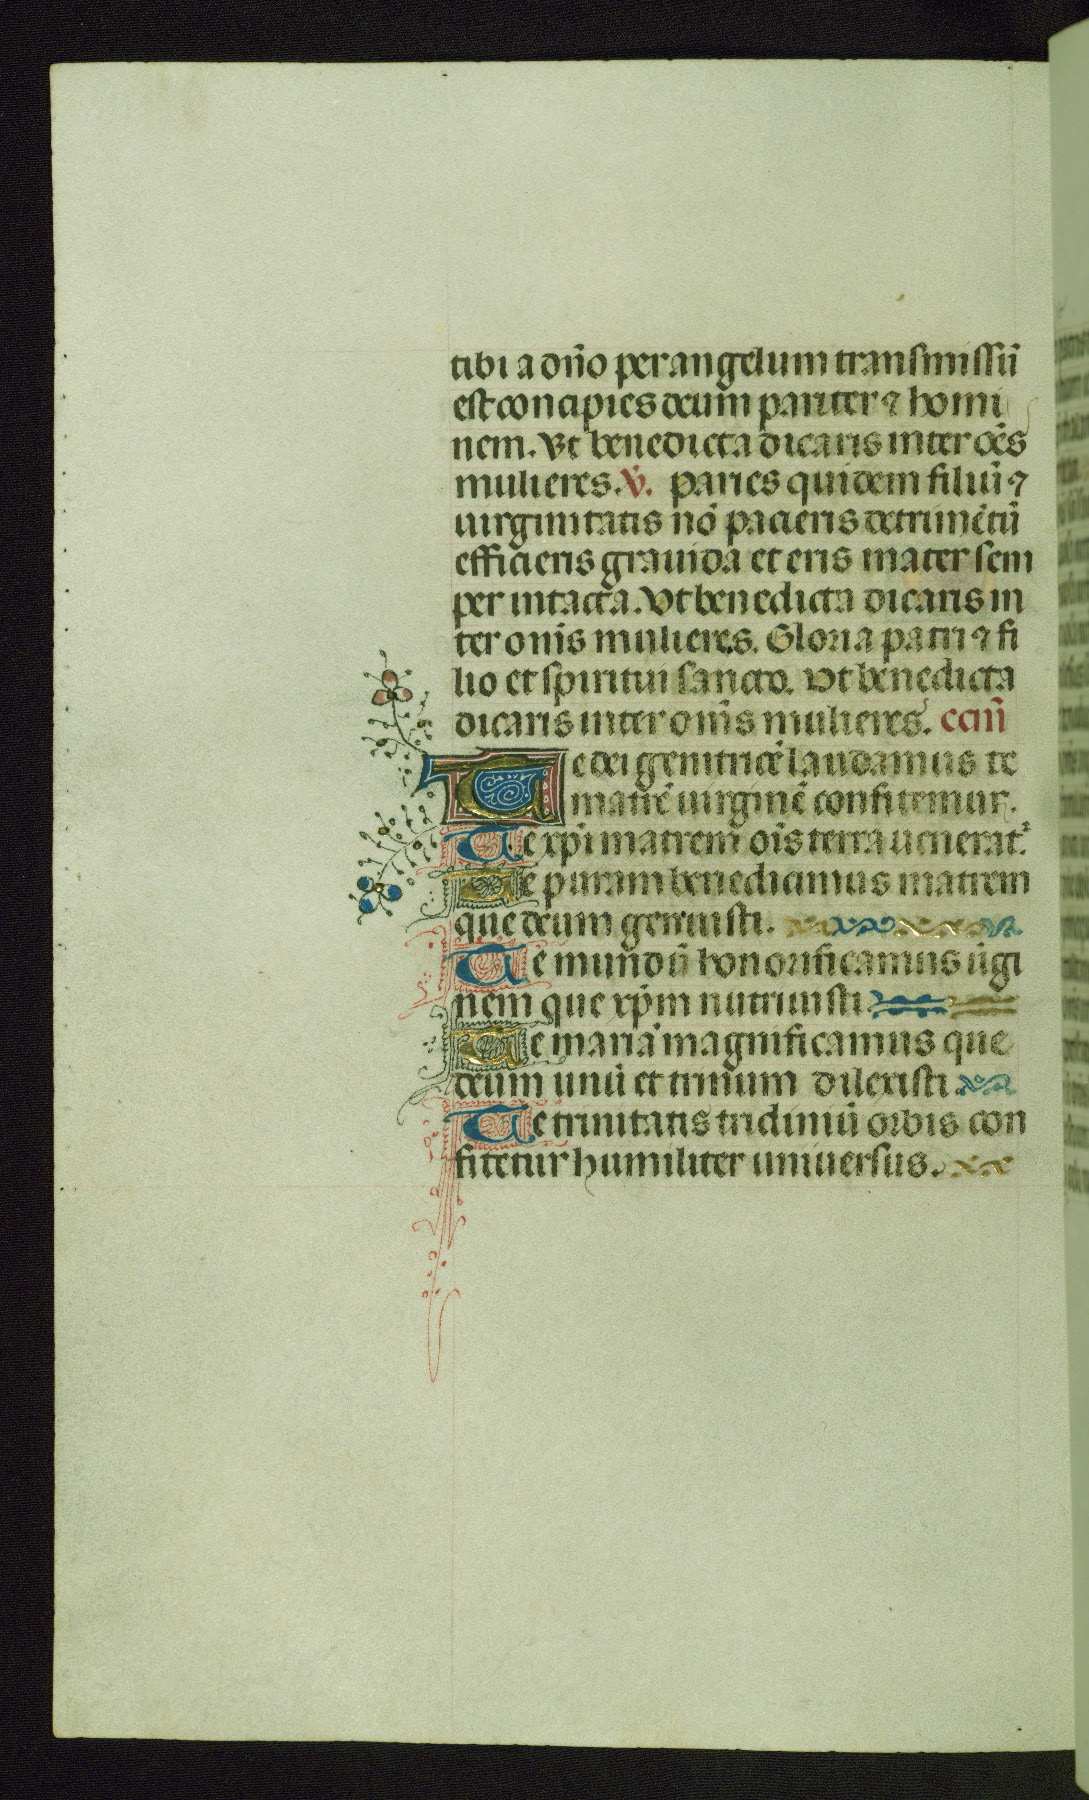 tibi a dño per angelum transmissũ
est concipies deum pariter ⁊ homi
nem. Vt benedicta dicaris inter oẽs
mulieres. V̾. Paries quidem filiũ ⁊
uirginitatis nõ pacieris detrimẽtũ
efficieris grauida et eris mater sem
per intacta. Vt benedicta dicaris in
ter om̃is mulieres. Gloria patri ⁊ fi
lio et spiritui sancto. Vt benedicta
dicaris inter om̃is mulieres.
Te dei genitricẽ laudamus te
matrẽ uirginẽ confitemur.
Te xp̃i matrem oĩs terra uenerat᷑.
Te puram benedicimus matrem
que deum genuisti.
Te mundũ honorificamus ũgi
nem que xp̃m nutriuisti
Te mariã magnificamus que
deum unũ et trinum dilexisti
Te trinitatis tricliniũ orbis con
fitetur humiliter uniuersus.